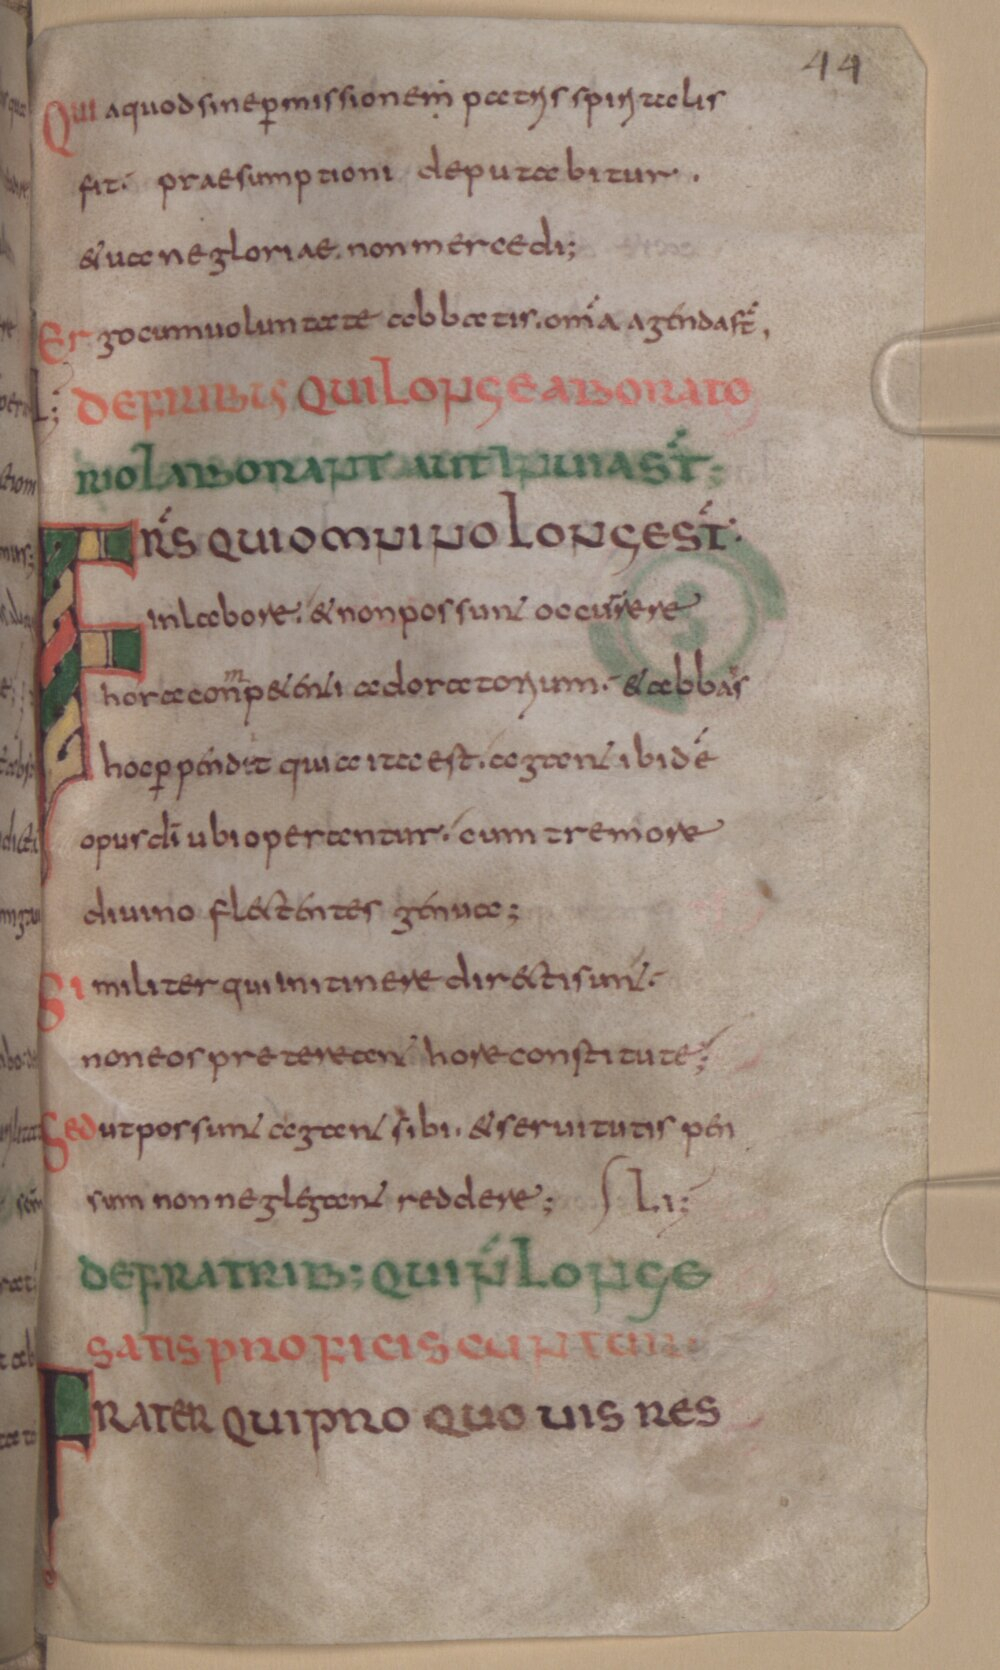 44
Quia quod sine p̱missionem patris spiritalis
fit. praesumptioni deputabitur.
& vane gloriae. non mercedi;
Ergo cum voluntate abbatis. om̄a agenda st̄,
L; DE FRIBUS QUI LONGE AB ORATO
RIO LABORANT AUT IN VIA ST̄;
FRS QUI OMNINO LONGE ST̄.
in labore. & non possunt occurrere
hora conmpetenti ad oratorium. & abbas
hoc p̱pendit quia ita est. agant ibidē
opus dī ubi operantur. cum tremore
divino flectentes genua;
Similiter qui in itinere directi sunt.
non eos pretereant hore constitute;
Sed ut possunt agant sibi. & servitutis pen
sum non neglegant reddere; LI;
DE FRATRIB; QUI N̄ LONGE
SATIS PROFICISCUNTUR
FRATER QUI PRO QUOVIS RES